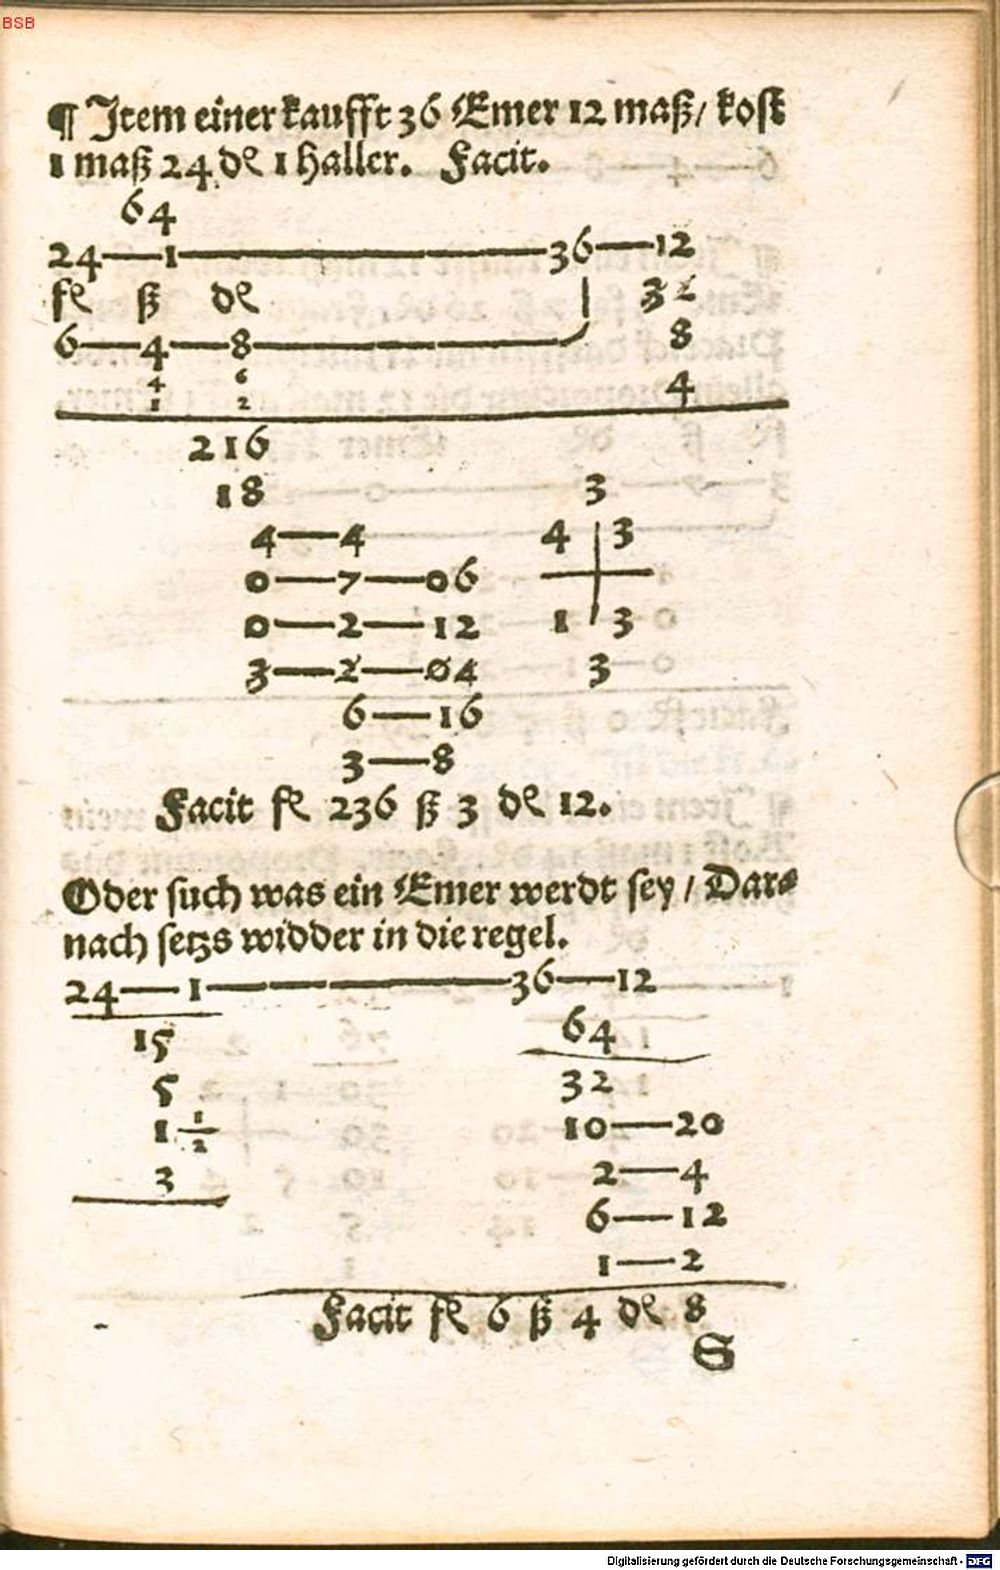 BSB
¶ Item einer kaufft 36 Emer 12 maß / kost
1 maß 24 ₰ 1 haller. Facit.
64
24—1—36—12
fl ß ₰ 32
6—4—8 8
4 6 4
1 2
216
18 3
4—4 4 3
0—7—06
0—2—12 1 3
3—2—04 3
6—16
3—8
Facit fl 236 ß 3 ₰ 12.
Oder such was ein Emer werdt sey / Dar⸗
nach setzs widder in die regel.
24—1—36—12
15 64
5 32
1 1/2 10—20
3 2—4
6—12
1—2
Facit fl 6 ß 4 ₰ 8
S
Digitalisierung gefördert durch die Deutsche Forschungsgemeinschaft - DFG